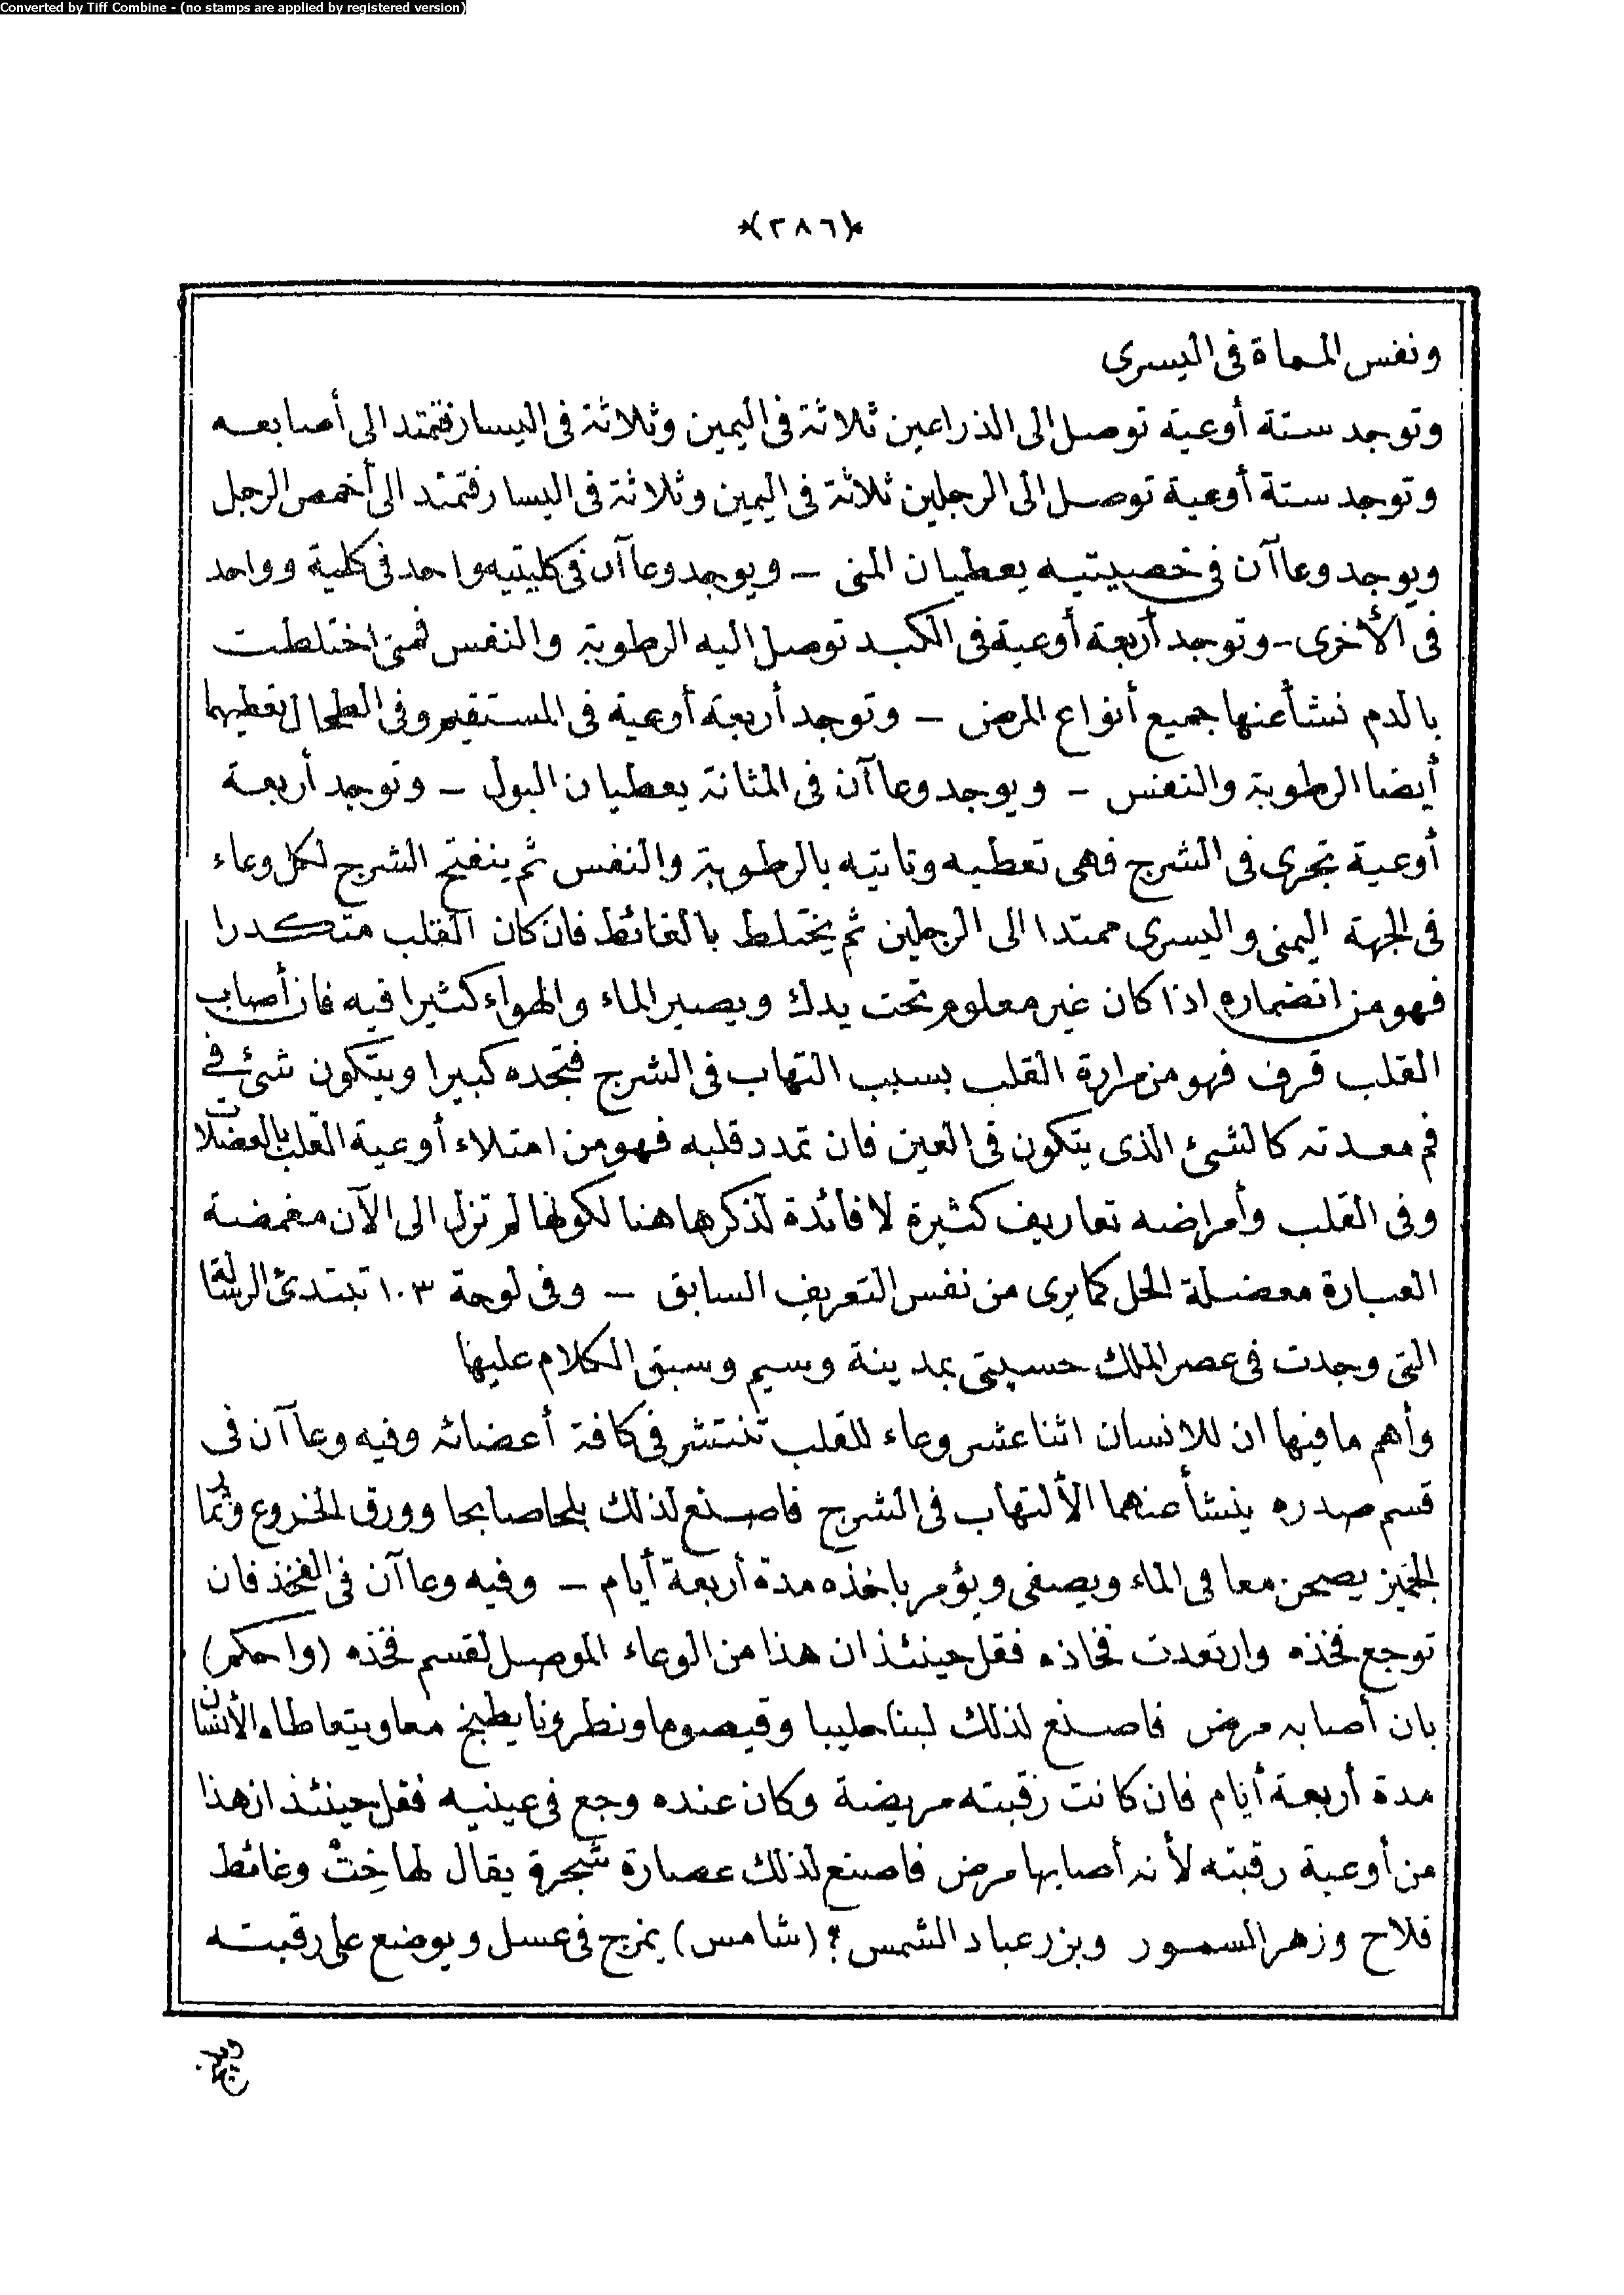 Converted by Tiff Combine - (no stamps are applied by registered version)
*(٢٨٦)*
ونفس المماة فى اليسرى
وتوجد ستة أوعية توصل الى الذراعين ثلاثة فى اليمين وثلاثة فى اليسار فتمتد الى أصابعه
وتوجد ستة أوعية توصل الى الرجلين ثلاثة فى اليمين وثلاثة فى اليسار فتمتد الى أخمص الرجل
ويوجد وعاآن فى خصيتيه يعطيان المنى – ويوجد وعاآن فى كليتيه واحد فى كلية وواحد
فى الأخرى – وتوجد أربعة أوعية فى الكبد توصل اليه الرطوبة والنفس فمتى اختلطت
بالدم نشأ عنها جميع أنواع المرض – وتوجد أربعة أوعية فى المستقيم وفى الطحال يعطيهما
أيضا الرطوبة والنفس – ويوجد وعاآن فى المثانة يعطيان البول – وتوجد أربعة
أوعية تجرى فى الشرج فهى تعطيه وتاتيه بالرطوبة والنفس ثم ينفتح الشرج لكل وعاء
فى الجهة اليمنى واليسرى ممتدا الى الرجلين ثم يختلط بالغائط فان كان القلب متكدرا
فهو من انضماره اذا كان غير معلوم تحت يدك ويصير الماء والهواء كثيرا فيه فان أصاب
القلب قرف فهو من مرارة القلب بسبب التهاب فى الشرج فتجده كبيرا ويتكون شئ فى
فم معدته كالشئ الذى يتكون فى العين فان تمدد قلبه فهو من امتلاء أوعية القلب بالعضلات
وفى القلب وأمراضه تعاريف كثيرة لا فائدة لذكرها هنا لكونها لم تزل الى الآن مغمضة
العبارة معضلة الحل كما يرى من نفس التعريف السابق – وفى لوحة ١٠٣ تبتدئ الرسالة
التى وجدت فى عصر الملك حسپتى بمدينة وسيم وسبق الكلام عليها
وأهم ما فيها ان للانسان اثنا عشر وعاء للقلب تنتشر فى كافة أعضائه وفيه وعاآن فى
قسم صدره ينشأ عنهما الألتهاب فى الشرج فاصنع لذلك بلحا صابحا وورق الخروع وثمار
الجميز يصحن معا فى الماء ويصفى ويؤمر باخذه مدة أربعة أيام – وفيه وعاآن فى الفخذ فان
توجع فخذه وارتعدت فخاذه فقل حينئذ ان هذا من الوعاء الموصل لقسم فخذه (واحكم)
بان أصابه مرض فاصنع لذلك لبنا حليبا وقيصوما ونطرونا يطبخ معا ويتعاطاه الأنسان
مدة أربعة أيام فان كانت رقبته مريضة وكان عنده وجع فى عينيه فقل حينئذ ان هذا
من أوعية رقبته لأنه أصابها مرض فاصنع لذلك عصارة شجرة يقال لها خِتْ وغائط
فلاح وزهر السمور وبزر عباد الشمس؟ (شامس) يمزج فى عسل ويوضع على رقبته